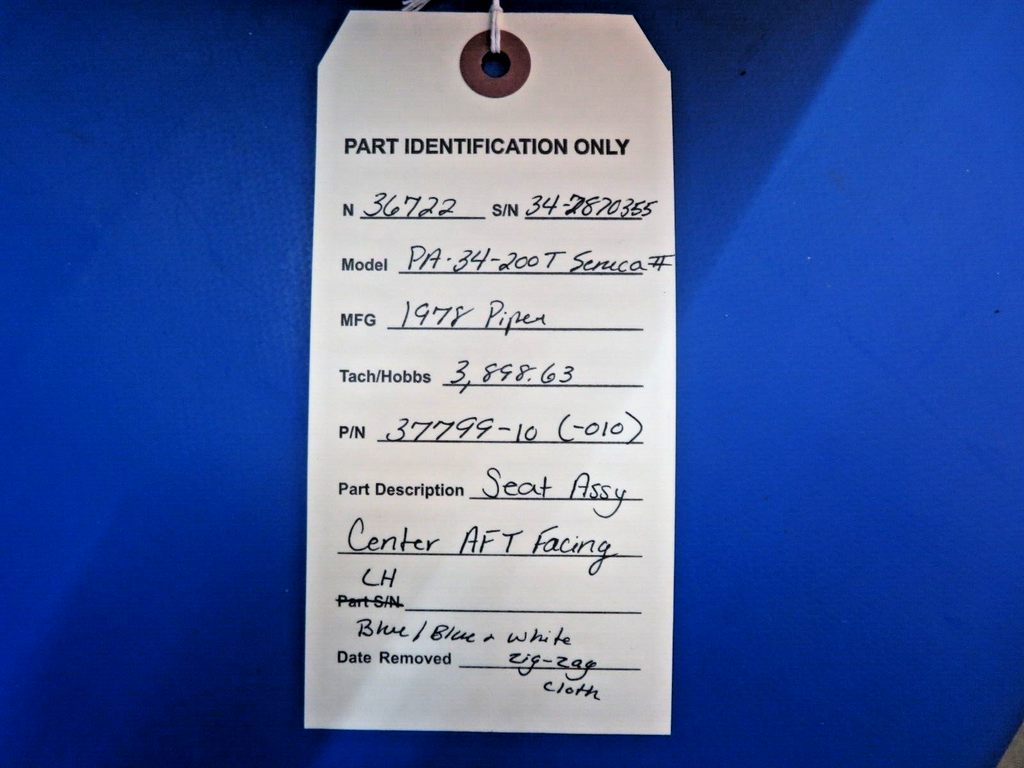 PART IDENTIFICATION ONLY
N 36722 S/N 34-7870355
Model PA-34-200T Seneca II
MFG 1978 Piper
Tach/Hobbs 3,898.63
P/N 37799-10 (-010)
Part Description Seat Assy
Center AFT Facing
LH
Part S/N
Blue/Blue & white
Date Removed zig-zag
cloth